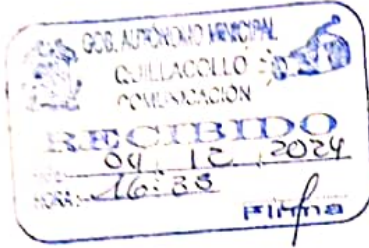 GOB. AUTÓNOMO MUNICIPAL
QUILLACOLLO
COMUNICACIÓN
RECIBIDO
04 12 2024
HORA: 16:38
Firma